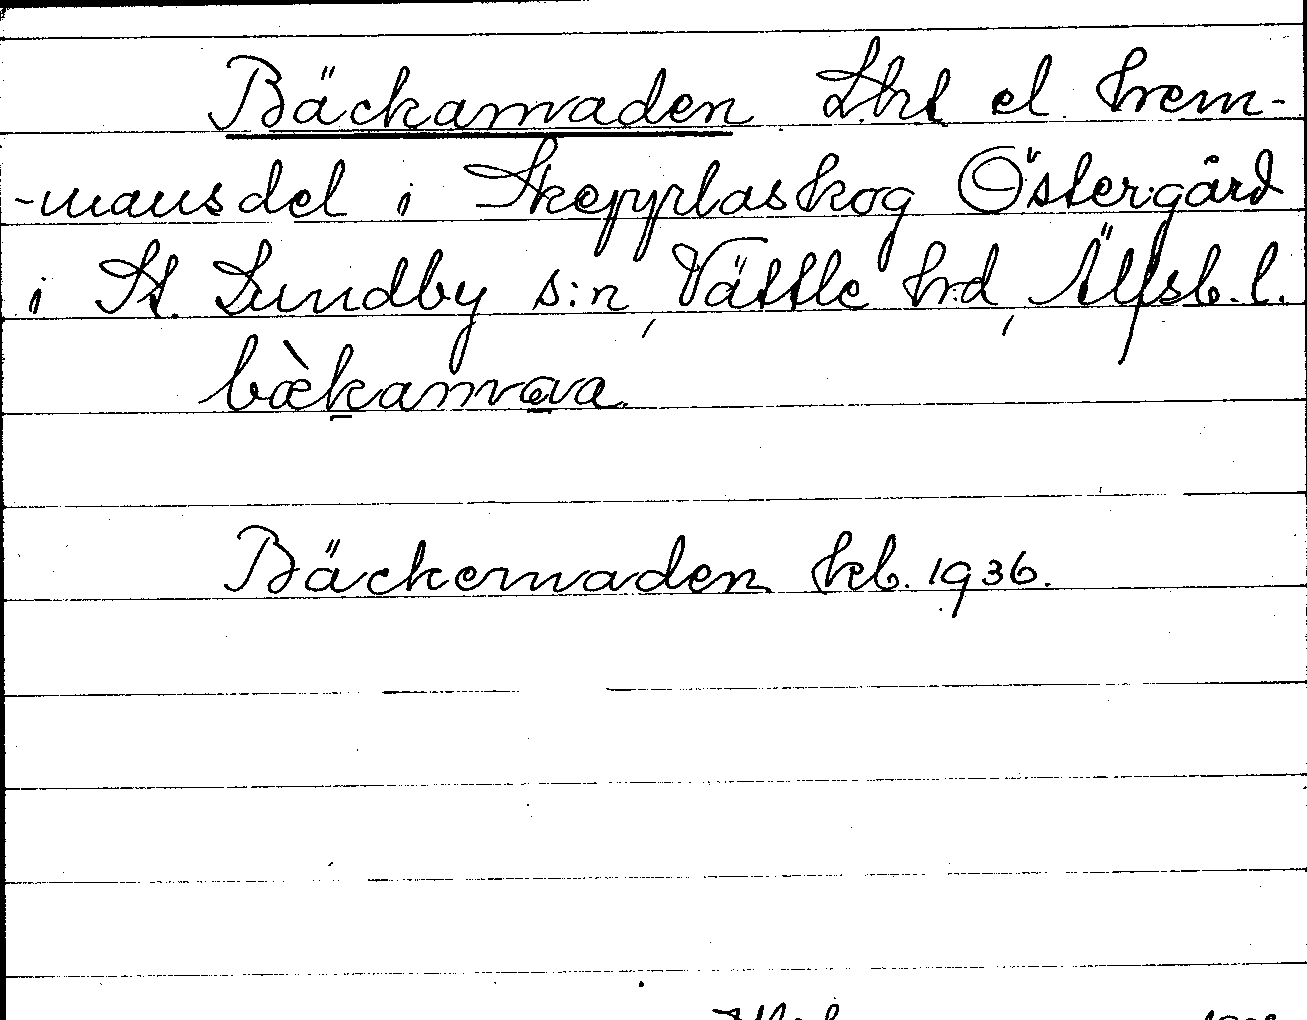 Bäckamaden Lht el. hem-
-mansdel i Skepplaskog Östergård
i St. Lundby s:n, Vättle hd, Älfsb. l.
bæ̀kamava
Bäckemaden kb. 1936.